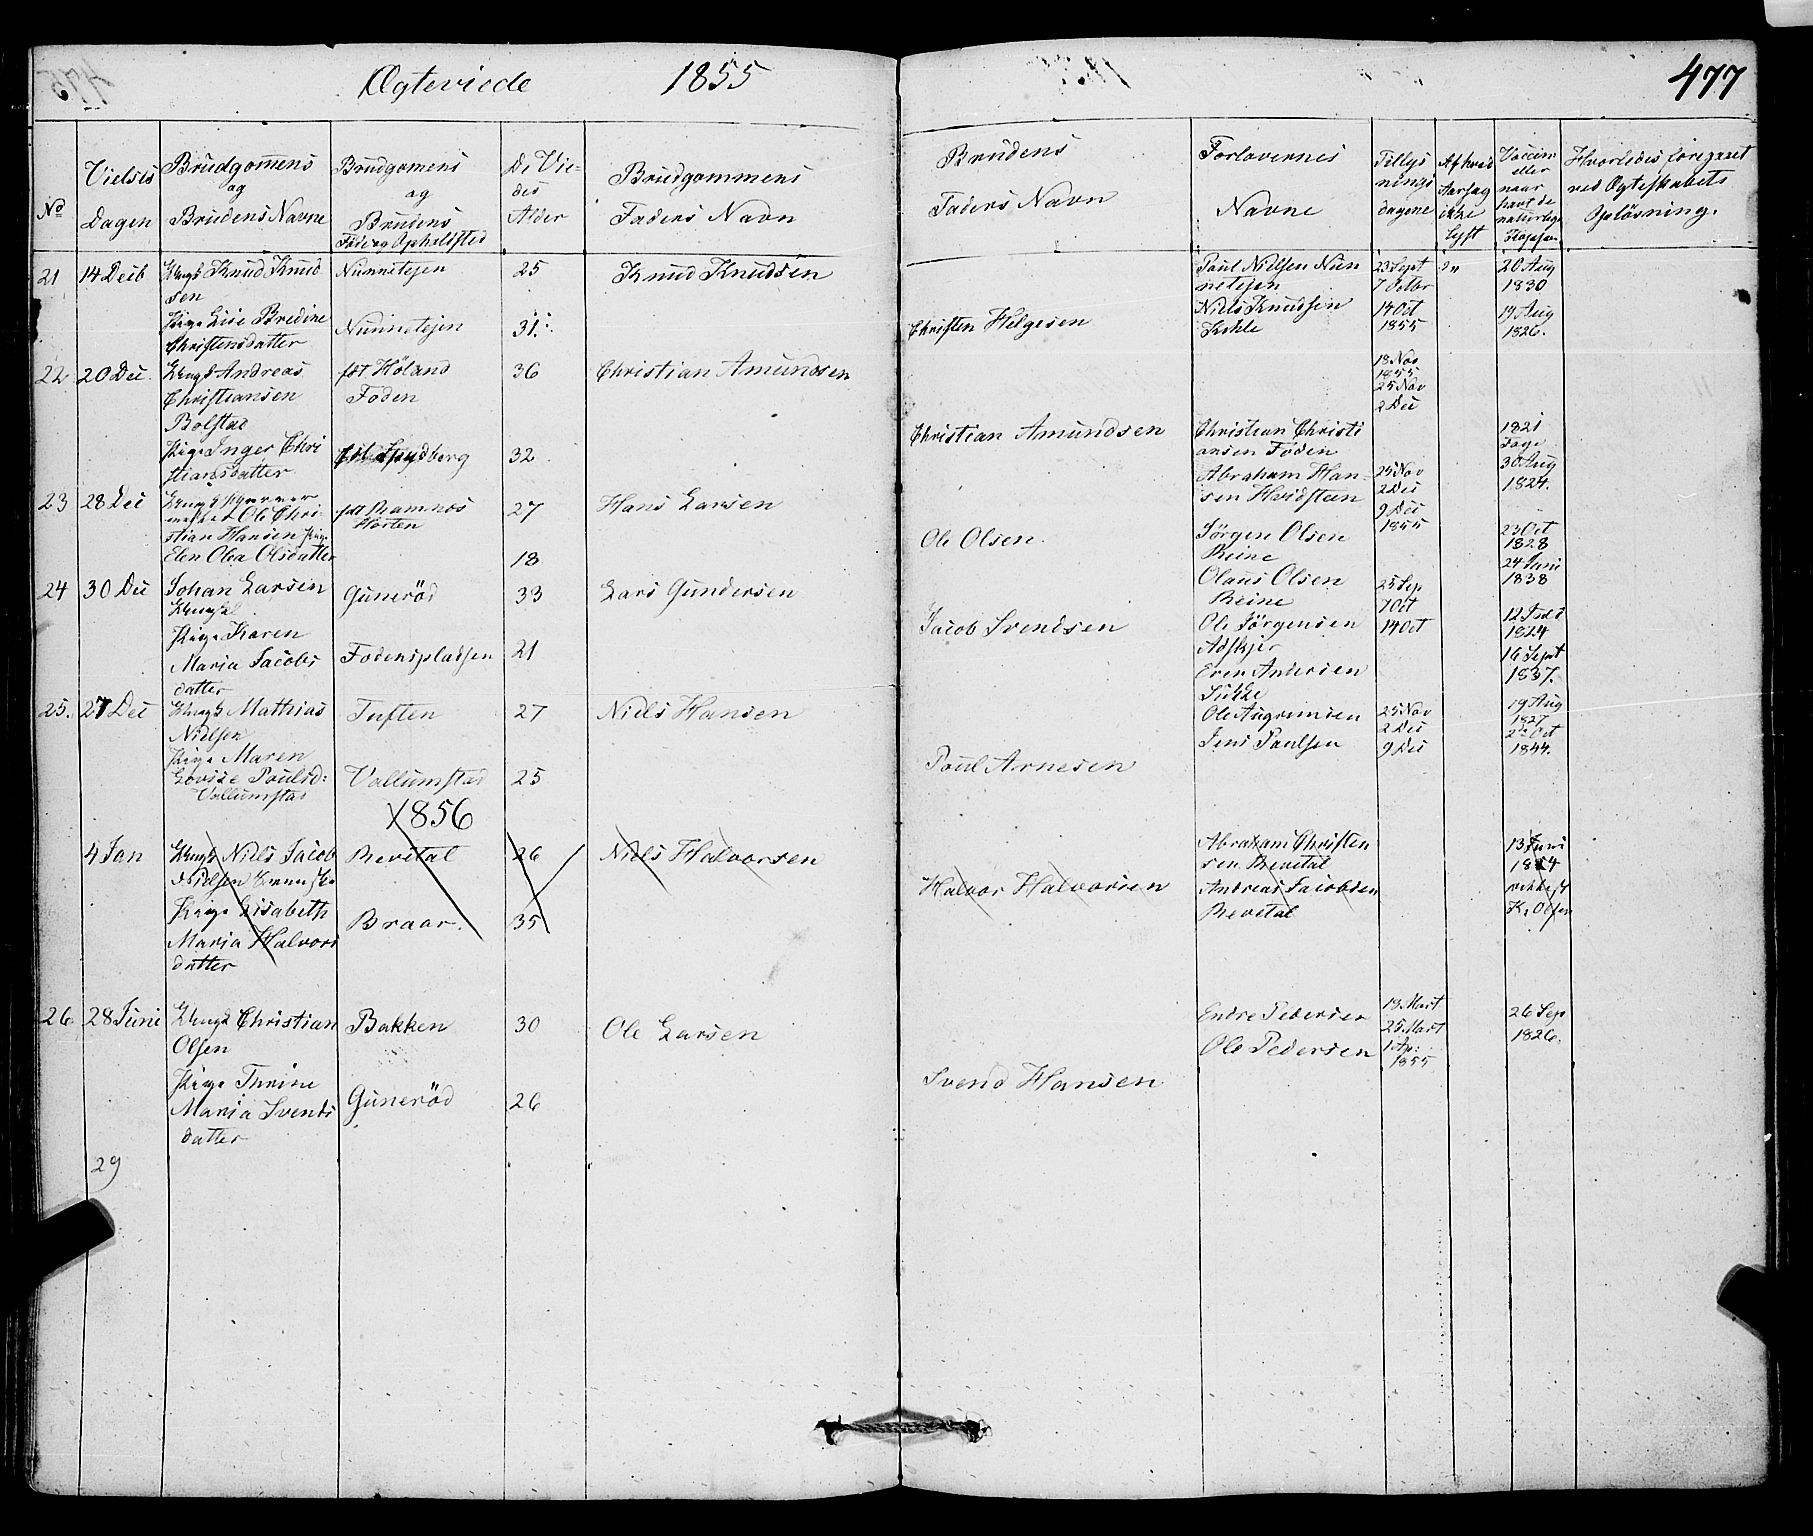 Ægteviede 1855
477
No
Vielses Dagen
Brudgomens og Brudens Navne
Brudgomens og Brudens Føde og Opholdsted
De Viedes Alder
Brudgommens Faders Navn
Brudens Faders Navn
Forlovernes Navne
Tillysningsdagene
Af hvad Aarsag ikke lyst
Vaccin eller naar havt de naturlige Kopper
Hvorledes foregaaet ved Ægteskabets Opløsning.
21 14 Decb Ungk Knud Knud Nunnetejen 25 Knud Knudsen Paul Nielsen Nun 23 Sept "" 20 Aug
sen netejen 7 Octbr 1830
Pige Lise Bredine Nunnetejen 31 Christen Helgesen Niels Knudsen 14 Oct 19 Aug
Christensdatter 1855 1826.
22 20 Dec. Ungk Andreas fdt Höland 36 Christian Amundsen 18 Nov
Christiansen Foden 1855
Bolstad 25 Nov
2 Dec
Pige Inger Chri Spydberg 32 Christian Amundsen Christian Christi 1821
stiansdatter ansen Foden
Abraham Han- 25 Nov 30 Aug
sen Hvidsteen 2 Dec 1824.
23 28 Dec Ungk fdt Ramnes 27 Hans Larsen 9 Dec
Ole Chri- Horten 1855
stian Hansen Pige Ole Olsen. Jörgen Olsen 23 Oct
Elen Olea Olsdatter 18 Reine 1828
Olaus Olsen 24 Juni
Reine 1838
24 30 Dec Johan Larsen Gunerød 33 Lars Gundersen 25 Sep
Ungkl. 7 Oct
Pige Karen Jacob Svendsen Ole Jörgensen 14 Oct 12
Maria Jacobs Fodenspladsen 21 Adskjer 1824
datter Even Andersen 16 Sept
1837.
25. 27 Dec Ungk Mathias Tuften 27 Niels Hansen Ole Asgrimsen 25 Nov 19 Aug
Nielsen 2 Dec 1827
Pige Maren Jens Paulsen 9 Dec Oct
Lovise Poulsd: Vallumstad 25 Poul Arnesen 1844.
Vallumstad
1856
4 Jan Ungk Niels Jacob Revetal 26 Niels Halvorsen Abraham Christen 13 Juni
Nielsen sen Revetal 1814
Pige Lisabeth Braar. 35 Halvor Halvorsen Andreas Jacobsen
Maria Halvors Revetal K. Olsen
datter
26 28 Juni Ungk Christian Bakken 30 Ole Larsen Endre Pedersen 13 Mart 26 Sep
Olsen 25 Mart 1826.
Ole Pedersen 1 Ap:
1855
Pige Thrine Gunerød 26 Svend Hansen
Maria Svends
datter
29